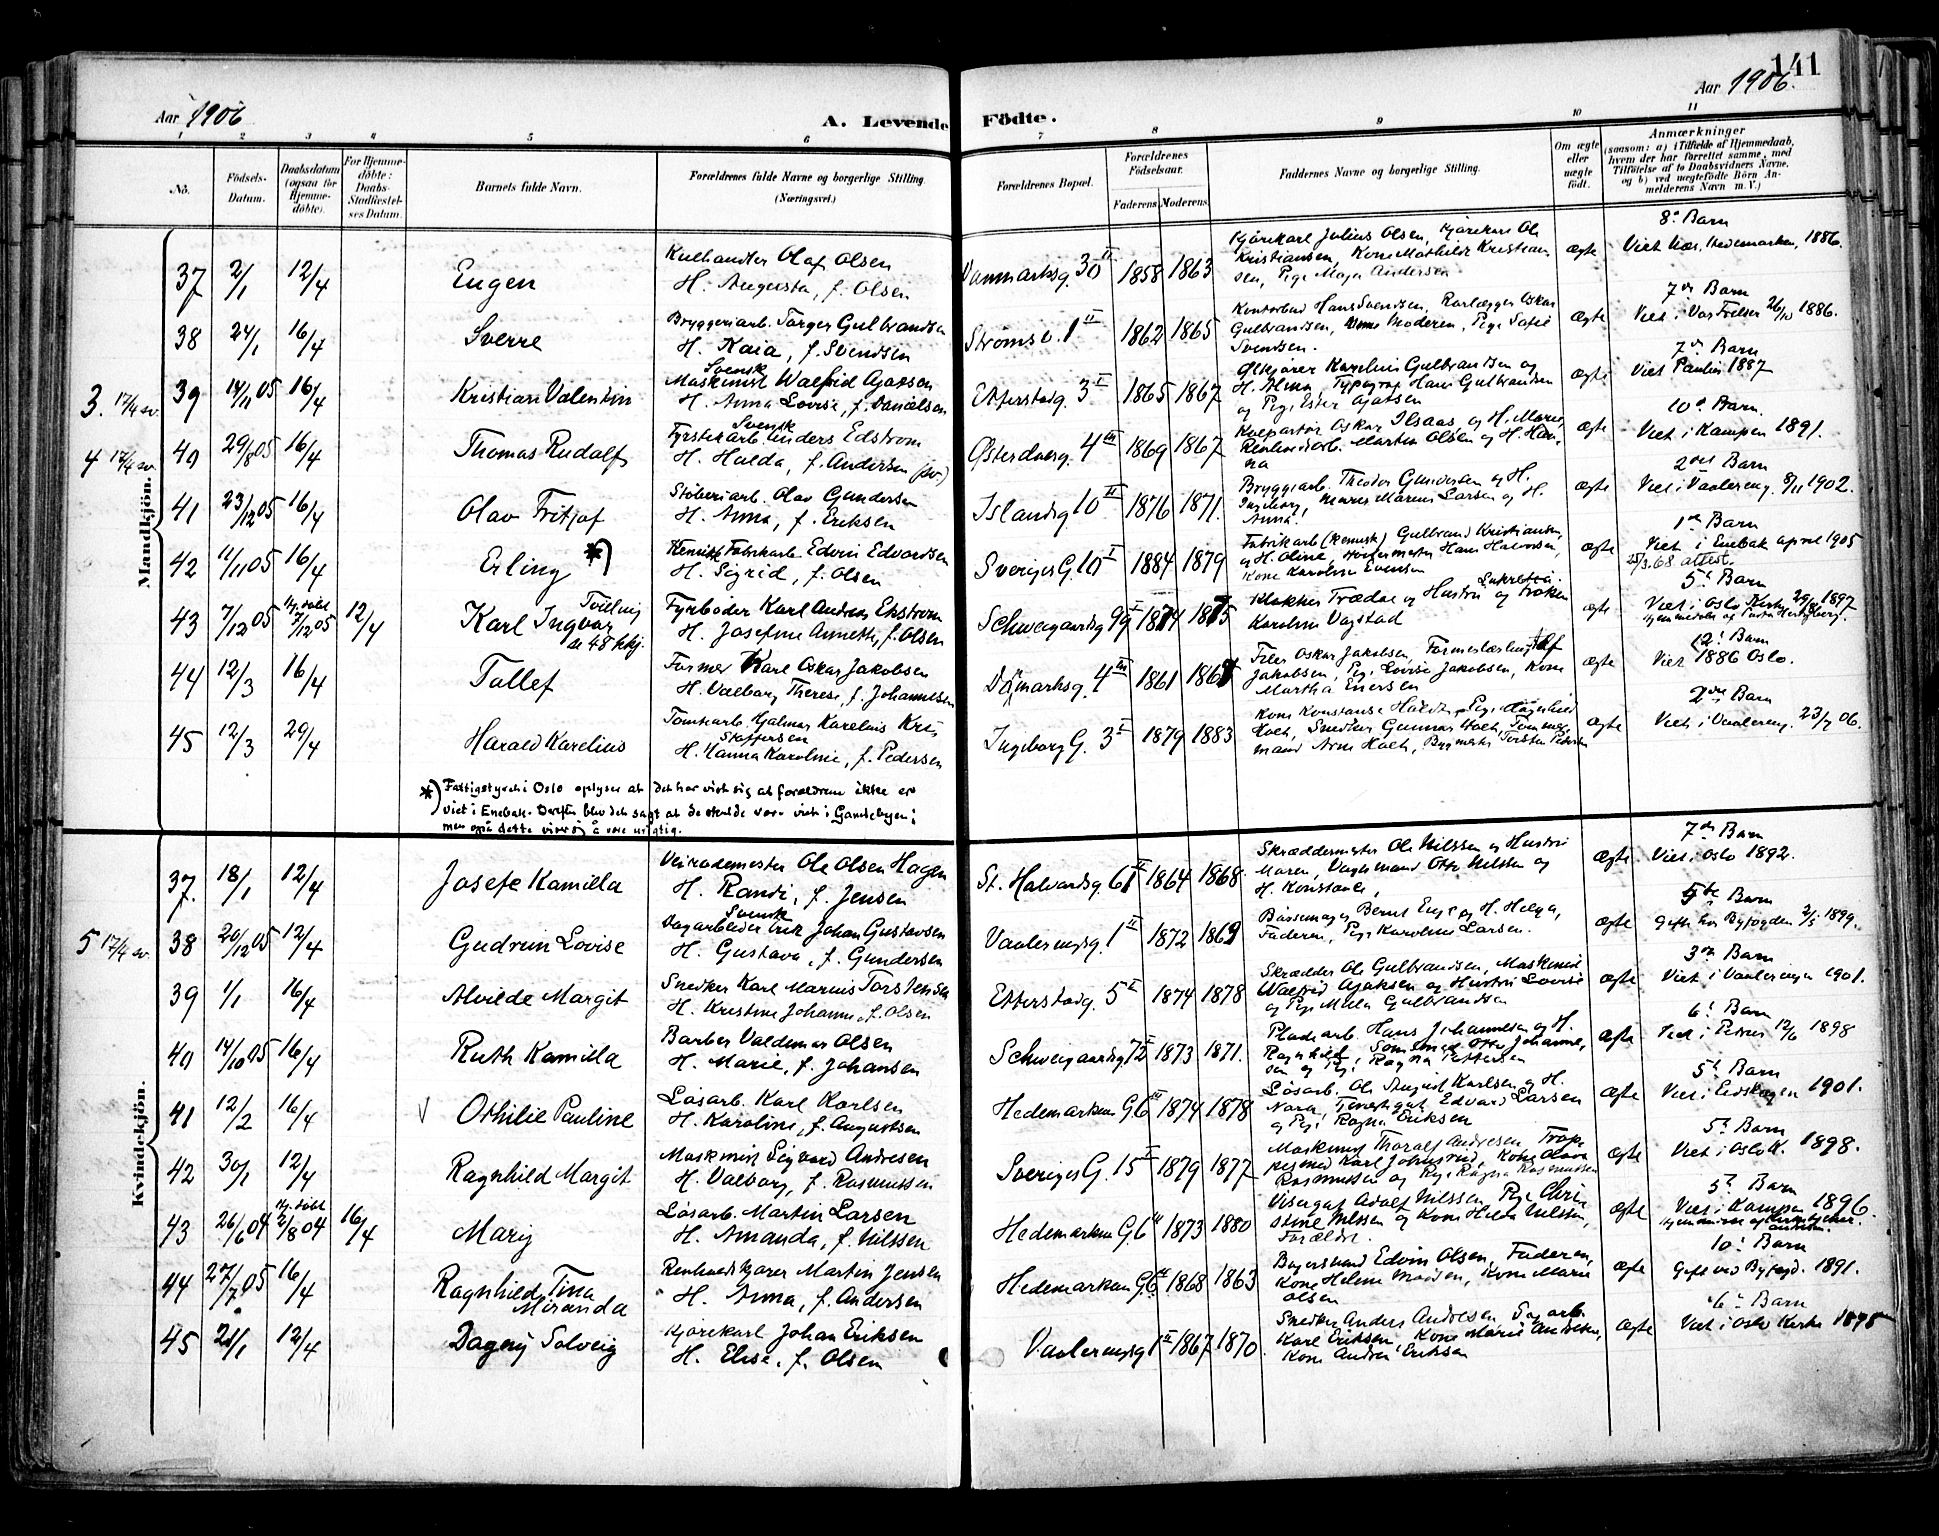 141
Aar 1906
A. Levende Födte.
Aar 1906.
1 2 3 4 5 6 7 8 9 10 11
No.
Födsels-Datum.
Daabsdatum (ogsaa for Hjemme-döbte).
For Hjemme-döbte: Daabs-Stadfæstel-ses Datum.
Barnets fulde Navn.
Forældrenes fulde Navne og borgerlige Stilling. (Næringsvei.)
Forældrenes Bopæl.
Forældrenes Födselsaar.
Faderens. Moderens.
Faddernes Navne og borgerlige Stilling.
Om ægte eller uægte födt.
Anmærkninger
(saasom: a) i Tilfælde af Hjemmedaab, hvem der har forrettet samme, med Tilföielse af to Daabsvidners Navne, og b) ved uægtefödte Börn An-melderens Navn m. V.)
Mandkjön.
8de Barn
37 2/1 12/4 Eugen
Kulhandler Olaf Olsen
H. Augusta, f. Olsen
Danmarksg. 30 II 1858 1863
Kjørekarl Julius Olsen, Kjørekarl Ole
Kristiansen, Kone Mathilde Kristian
sen, Pige Maja Andersen
ægte
Viet Hedemarken, 1886.
7de Barn
38 24/1 16/4 Sverre
Bryggeriarb. Torger Gulbrandsen
H. Kaia, f. Svendsen
Strømsv. 1 II 1862 1865
Kontorbud Hans Svendsen, Rørlægger Oskar
Gulbrandsen, Moderen, Pige Sofie
Svendsen.
ægte
Viet i Vor Frelser 26/10 1886.
7de Barn
3. 17/4 sv. 39 14/11 05 16/4 Kristian Valentin
Svensk
Maskinist Walfrid Ajaxsen
H. Anna Lovise, f. Danielsen
Etterstadg. 3 I 1865 1867
Ølkjører Karelius Gulbrandsen og
H. Alma, Typograf Hans Gulbrandsen
og Pige Ester Ajaksen
ægte
Viet Paulus 1887
10de Barn.
4 17/4 sv. 40 29/8 05 16/4 Thomas Rudolf
Svensk
Fyrstikarb. Anders Edstrøm
H. Hulda, f. Andersen (sv.)
Østerdalsg. 4 III 1869 1867
Kolportør Oskar Ilsaas og H. Marie,
Renholdsarb. Martin Olsen og H. Han,
na
ægte
Viet i Kampen 1891.
2det Barn
41 23/12 05 16/4 Olav Fritjof
Støberiarb. Olav Gundersen
H. Anna, f. Eriksen
Islandsg 10 II 1876 1871.
Bryggeriarb. Theodor Gundersen og H.
Ingeborg, Marius Larsen og H.
Anna.
ægte
Viet i Vaalereng. 8/11 1902.
1ste Barn
42 11/11 05 16/4 Erling *)
Kemisk Fabrikarb. Edvin Edvardsen
H. Sigrid, f. Olsen
Sveriges G. 10 I 1884 1879
Fabrikarb (Kemisk) Gulbrand Kristiansen
og H. Oline, Hans Halvorsen,
Kone Karoline Evensen
ægte
Viet i Enebak april 1905
25/3.68 attest.
5te Barn
43 7/12 05 Hj. døbt 7/12 05 12/4 Karl Ingvar
Tvilling
til 48 kvkj.
Fyrbøder Karl Andreas Ekstrøm
H. Josefine Annette, f. Olsen
Schweigaardsg 99 I 1874 1875
Klokker Trædal og Hustru og Frøken
Karoline Vagstad
ægte
Viet i Oslo Kirke 29/8 1897
Hjemmedøbt af Pastor Hertzberg.
12te Barn
44 12/3 16/4 Tallef
Former Karl Oskar Jakobsen
H. Valborg Therese, f. Johannesen
Danmarksg. 4 III 1861 1867
Filer Oskar Jakobsen, Formerlærling Alf
Jakobsen, Pige Lovise Jakobsen, Kone
Martha Enersen
ægte
Viet 1886 Oslo.
2det Barn
45 12/3 29/4 Harald Karelius
Tomtearb. Hjalmar Karelius Kris,
Stoffersen
H. Hanna Karoline, f. Pedersen
Ingeborg G. 3 I 1879 1883
Kone Konstanse Holdt, Pige Ragnhild
Holt, Snedker Gunnar Holt, Tømmer,
mand Arne Holt, Bygmester Torsten Pedersen
ægte
Viet i Vaalereng. 23/7 06.
*) Fattigstyret i Oslo oplyser at det har vist sig at forældrene ikke er
viet i Enebak. Derefter blev det sagt at de skulde være viet i Gamlebyen;
men også dette viser sig å være uriktig.
Kvindekjön.
7de Barn
37. 18/1 12/4 Josefe Kamilla
Veirodemester Ole Olsen Hagen
H. Randi, f. Jensen
St. Halvardsg. 61 II 1864 1868
Skræddermester Ole Nilssen og Hustru
Maren, Vagtmand Otto Nilssen og
H. Konstance,
ægte
Viet i Oslo 1892.
5te Barn
5 17/4 sv. 38 20/12 05 12/4 Gudrun Lovise
Svensk
Dagarbeider Erik Johan Gustavsen
H. Gustava, f. Gundersen
Vaalerengsg. 1 II 1872 1869
Børsemager Bernt Enge og H. Helga,
Faderen, Pige Karoline Larsen.
ægte
Gift hos Byfogden 2/5 1899.
3die Barn
39 1/1 16/4 Alvilde Margit
Snedker Karl Marius Torstensen
H. Kristine Johanne, f. Olsen
Etterstadg. 5 I 1874 1878
Skrædder Ole Gulbrandsen, Maskinist
Walfrid Ajaksen og Hustru Lovise
og Pige Gulbrandsen
ægte
Viet i Vaalerengen 1901.
6te Barn
40 14/10 05 16/4 Ruth Kamilla
Barber Valdemar Olsen
H. Marie, f. Johansen
Schweigaardsg. 72 1873 1871.
Pladearb. Hans Johannesen og H.
Ragnhild, Sømand Otto Johanne,
sen og Pige Ragna Pettersen
ægte
Viet i Petrus 12/6 1898
5te Barn
41 12/2 16/4 Othilie Pauline
Løsarb. Karl Karlsen
H. Karoline, f. Augustsen
Hedemarkens G. 6 III 1874 1878
Løsarb. Ole August Karlsen og H.
Nora, Edvard Larsen
og Pige Ragna Eriksen
ægte
Viet i Eidskogen 1901.
5te Barn
42 30/1 12/4 Ragnhild Margit
Maskinist Sigvard Andresen
H. Valborg, f. Rasmussen
Sveriges G. 15 I 1879 1877
Maskinist Thoralf Andresen, Trope
Karl Johnsrud, Kone Olava
Rasmussen og Pige Ragna Rasmussen
ægte
Viet i Oslo K. 1898.
5te Barn
43 26/6 04 Hj. døbt 2/8 04 16/4 Mary
Løsarb. Martin Larsen
H. Amanda, f. Nilssen
Hedemarkens G. 6 II 1873 1880
Visergut Adolf Nilssen, Pige Chri
stine Nilssen og Kone Hilda Nilssen,
Forældre.
ægte
Viet i Kampen 1896.
10de Barn
44 27/7 05 16/4 Ragnhild Tina
Miranda
Renholdskjører Martin Jensen
H. Anna, f. Andersen
Hedemarkens G. 6 III 1868 1863
Edvin Olsen, Faderen,
Kone Helene Madsen, Kone Marie
Olsen
ægte
Gift ved Byfogd. 1891.
6te Barn
45 21/1 12/4 Dagny Solveig
Kjørekarl Johan Eriksen
H. Elise, f. Olsen
Vaalerengsg 1 II 1867 1870.
Snedker Anders Andresen, Sagarb.
Karl Eriksen, Kone Marie Andresen,
Kone Andrea Eriksen
ægte
Viet i Oslo Kirke 1895